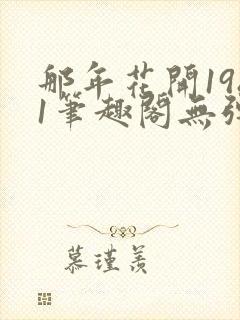 那年花開19
1筆趣閣無
慕瑾羨